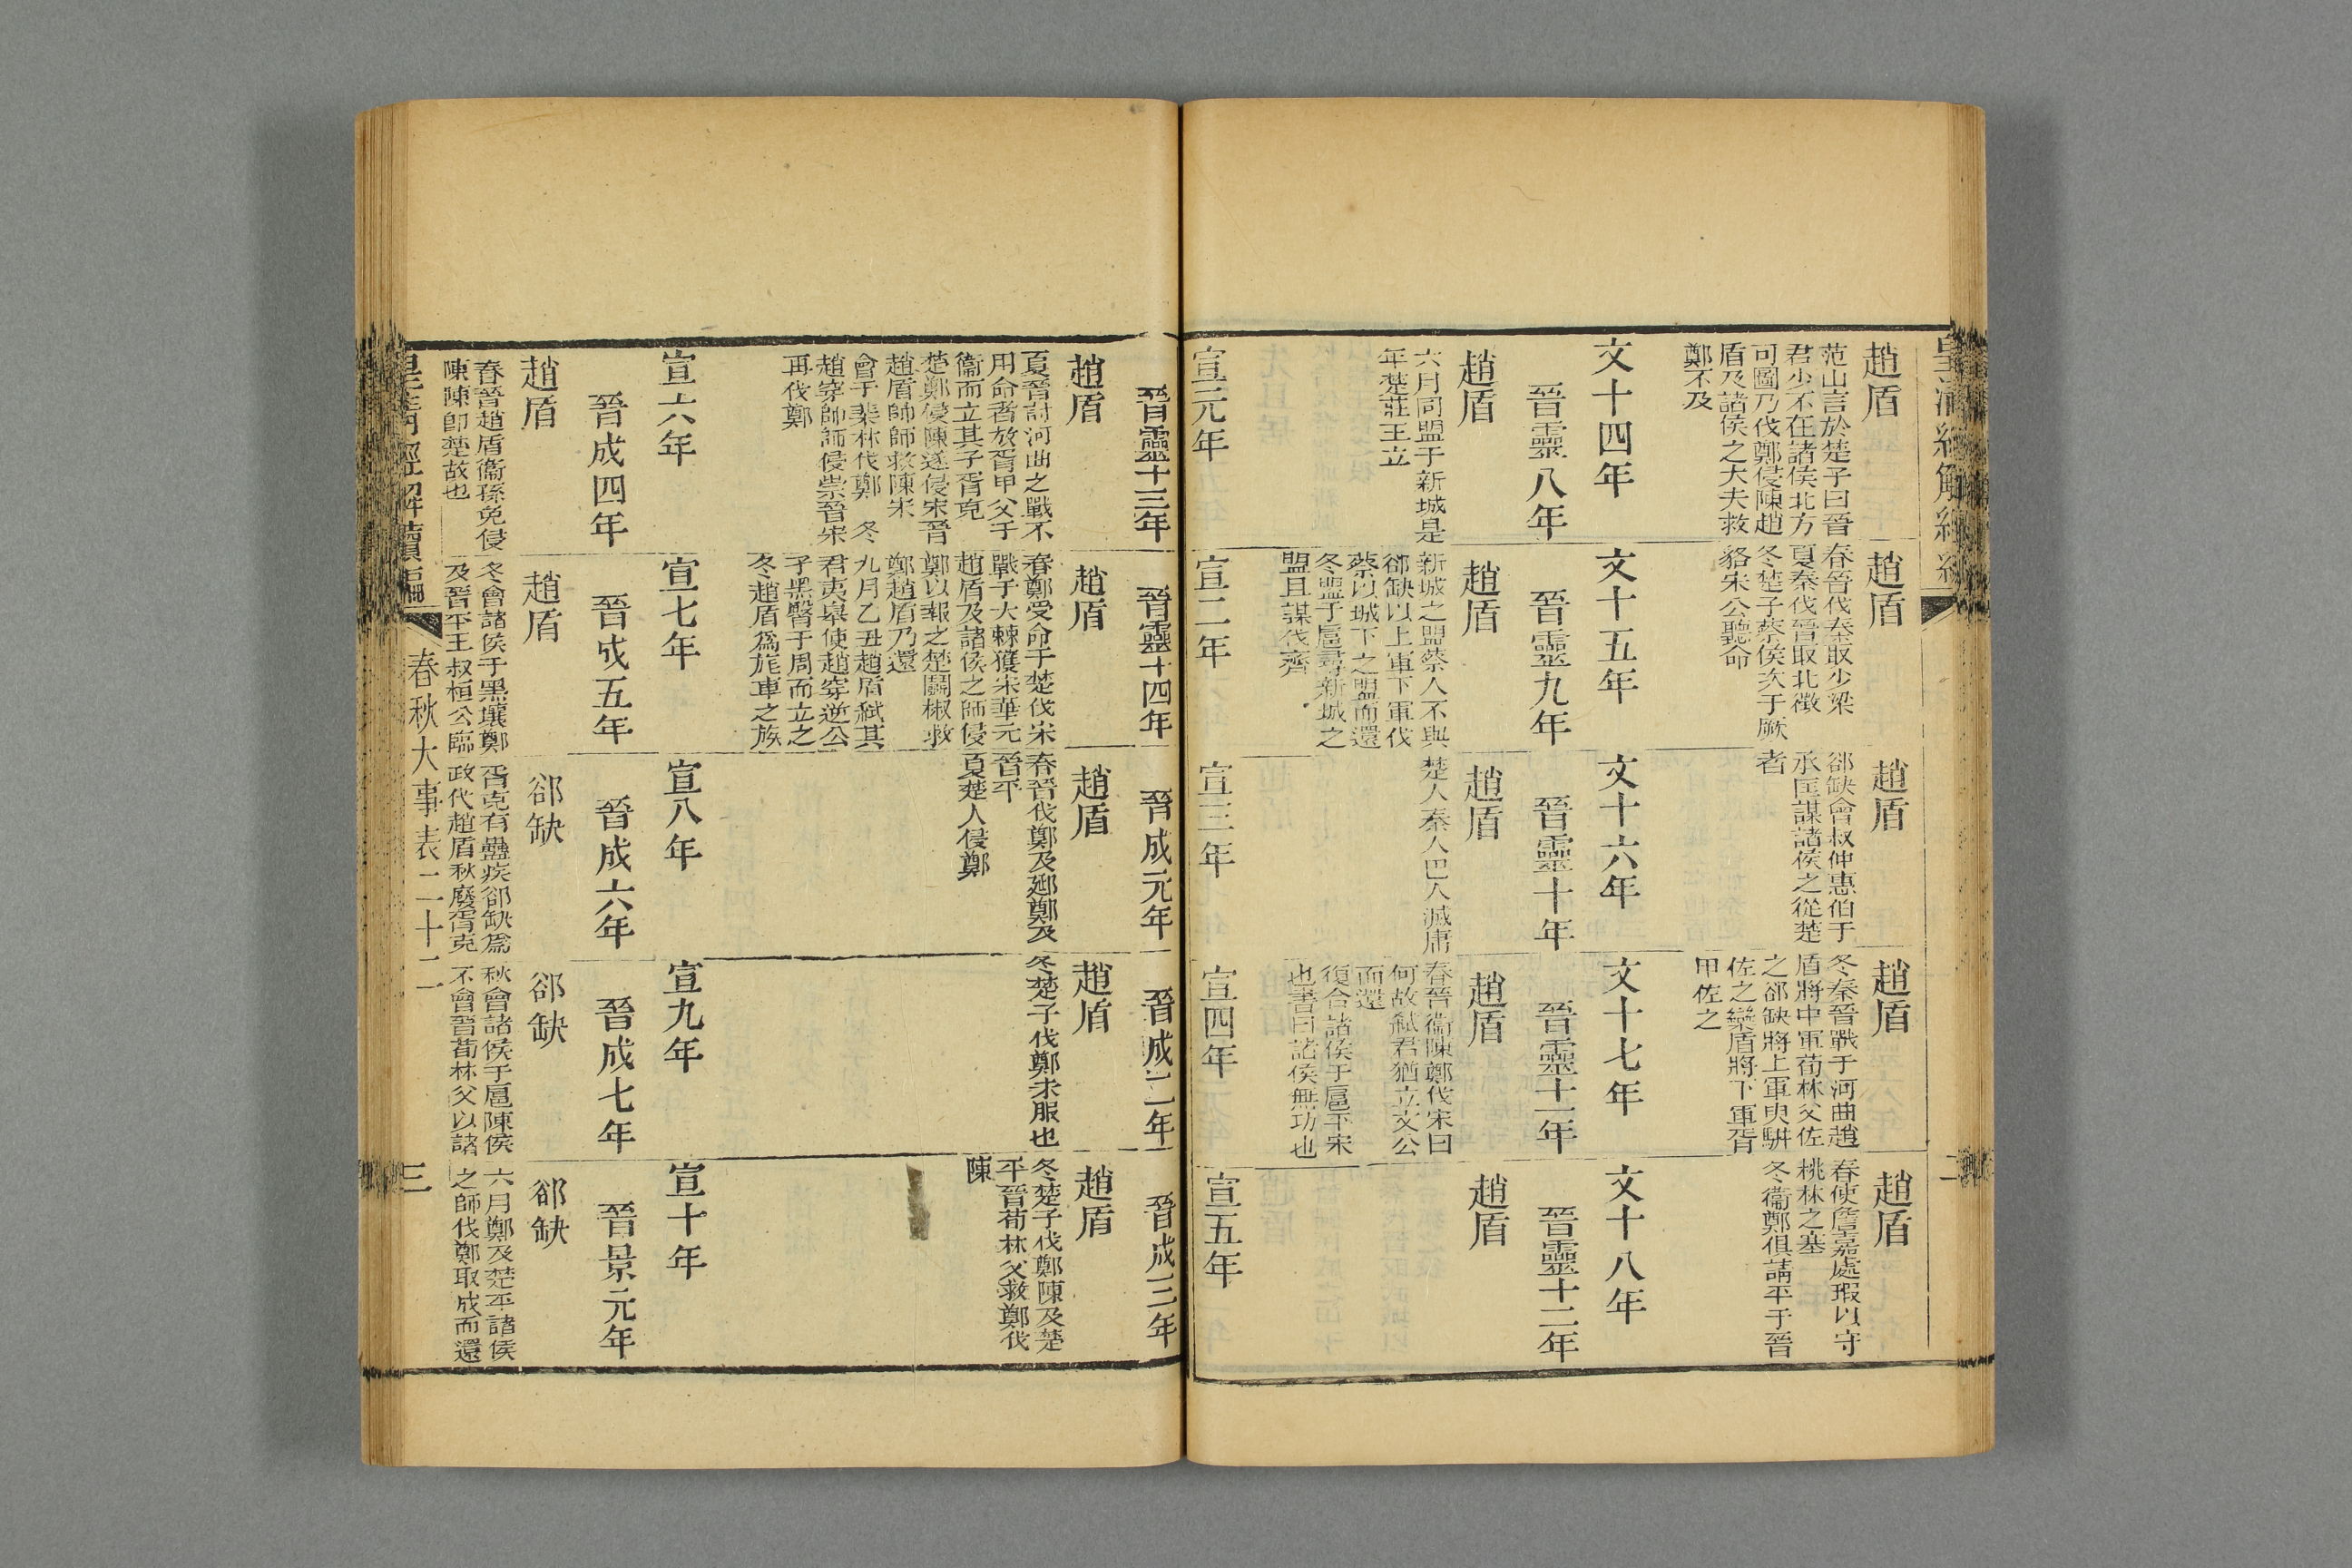 趙盾
范山言於楚子曰晉
君少不在諸侯北方
可圖乃伐鄭侵陳趙
盾及諸侯之大夫救
鄭不及
趙盾
春晉伐秦取少梁
夏秦伐晉取北徵
冬楚子蔡侯次于厥
貉宋公聽命
趙盾
郤缺會叔仲惠伯于
承匡謀諸侯之從楚
者
趙盾
冬秦晉戰于河曲趙
盾將中軍荀林父佐
之郤缺將上軍臾駢
佐之欒盾將下軍胥
甲佐之
趙盾
春使詹嘉處瑕以守
桃林之塞
冬衞鄭俱請平于晉
文十四年
晉靈八年
趙盾
六月同盟于新城是
年楚莊王立
文十五年
晉靈九年
趙盾
新城之盟蔡人不與
郤缺以上軍下軍伐
蔡以城下之盟而還
冬盟于扈尋新城之
盟且謀伐齊
文十六年
晉靈十年
趙盾
楚人秦人巴人滅庸
文十七年
晉靈十一年
趙盾
春晉衞陳鄭伐宋曰
何故弒君猶立文公
而還
復合諸侯于扈平宋
也書曰諸侯無功也
文十八年
晉靈十二年
趙盾
宣元年
晉靈十三年
趙盾
夏晉討河曲之戰不
用命者放胥甲父于
衞而立其子胥克
楚鄭侵陳遂侵宋晉
趙盾帥師救陳宋
會于棐林伐鄭 冬
趙穿帥師侵崇晉宋
再伐鄭
宣二年
晉靈十四年
趙盾
春鄭受命于楚伐宋
戰于大棘獲宋華元
趙盾及諸侯之師侵
鄭以報之楚鬬椒救
鄭趙盾乃還
九月乙丑趙盾弒其
君夷皋使趙穿逆公
子黑臀于周而立之
冬趙盾為旄車之族
宣三年
晉成元年
趙盾
春晉伐鄭及郔鄭及
晉平
夏楚人侵鄭
宣四年
晉成二年
趙盾
冬楚子伐鄭未服也
宣五年
晉成三年
趙盾
冬楚子伐鄭陳及楚
平晉荀林父救鄭伐
陳
宣六年
晉成四年
趙盾
春晉趙盾衞孫免侵
陳陳卽楚故也
宣七年
晉成五年
趙盾
冬會諸侯于黑壤鄭
及晉平王叔桓公臨
宣八年
晉成六年
郤缺
胥克有蠱疾郤缺爲
政代趙盾秋廢胥克
宣九年
晉成七年
郤缺
秋會諸侯于扈陳侯
不會晉荀林父以諸
宣十年
晉景元年
郤缺
六月鄭及楚平諸侯
之師伐鄭取成而還
皇清經解續編
春秋大事表二十二
三